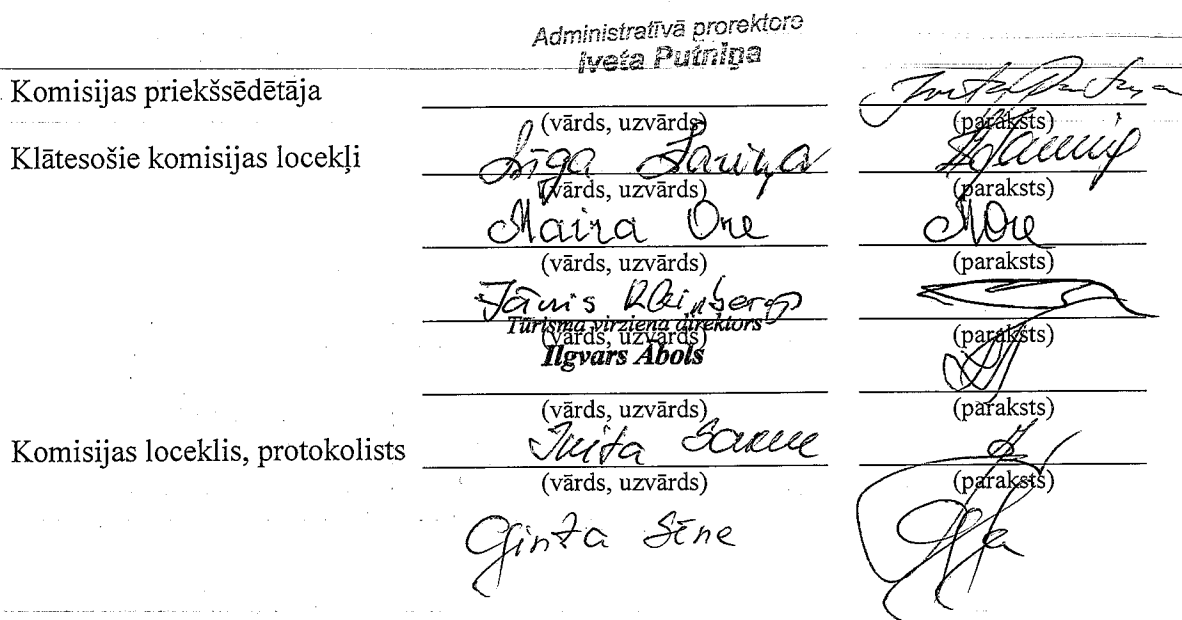 Administratīvā prorektore
Iveta Putniņa
Komisijas priekšsēdētāja
(vārds, uzvārds) (paraksts)
Klātesošie komisijas locekļi Līga Zariņa
(vārds, uzvārds) (paraksts)
Maira Ore MOre
(vārds, uzvārds) (paraksts)
Jānis Kleinbergs
Tūrisma virziena direktors
(vārds, uzvārds) (paraksts)
Ilgvars Ābols
(vārds, uzvārds) (paraksts)
Komisijas loceklis, protokolists Inita Sakne
(vārds, uzvārds) (paraksts)
Ginta Sīne